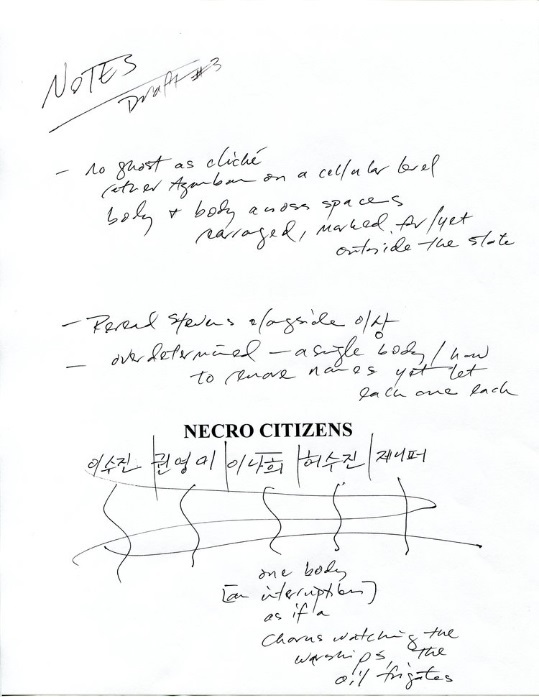 NOTES
Draft #3
- no ghost as cliché
rather Agamben on a cellular level
body + body across spaces
ravaged, marked for/yet
outside the state
- Reveal Stevens alongside 이상
- overdetermined - a single body / how
to remove names yet let
each one each
NECRO CITIZENS
이수진 | 권영미 | 이나희 | 허수진 | 제니퍼
one body
[an interruption]
as if a
chorus watching the
warships, the
oil frigates